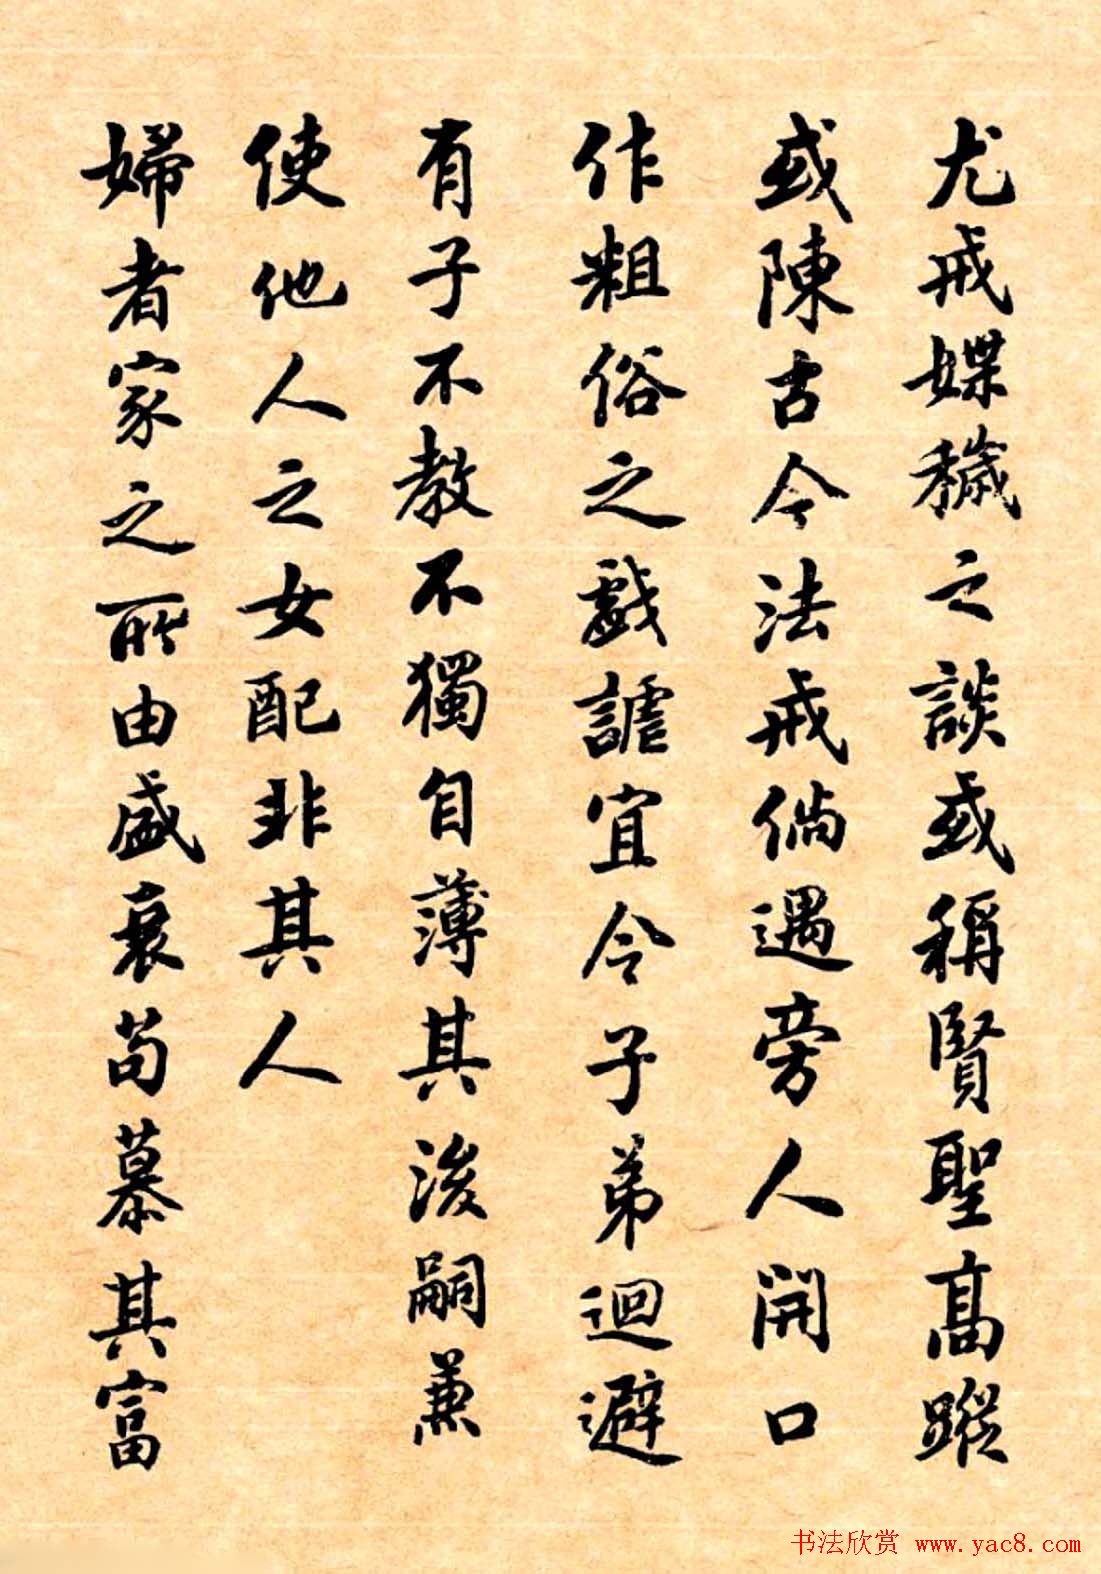 尤戒媟穢之談或稱賢聖高蹤
或陳古今法戒倘遇旁人開口
作粗俗之戲謔宜令子弟迴避
有子不教不獨自薄其後嗣兼
使他人之女配非其人
婦者家之所由盛衰苟慕其富
书法欣赏 www.yac8.com